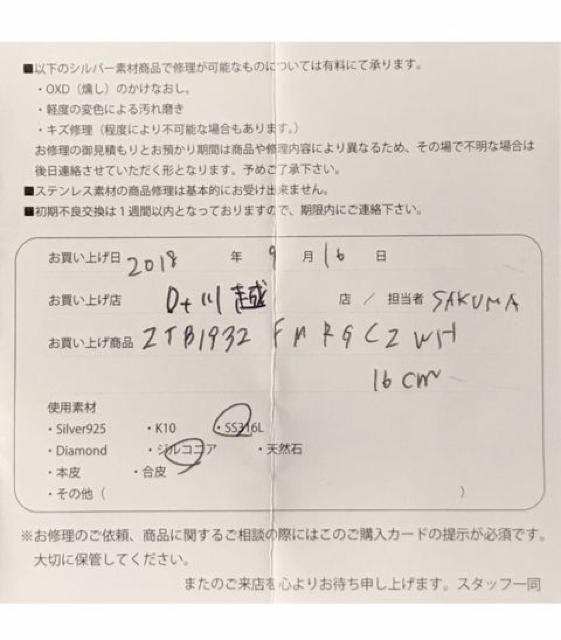 ■以下のシルバー素材商品で修理が可能なものについては有料にて承ります。
・OXD（燻し）のかけなおし。
・軽度の変色による汚れ磨き
・キズ修理（程度により不可能な場合もあります。）
お修理の御見積もりとお預かり期間は商品や修理内容により異なるため、その場で不明な場合は
後日連絡させていただく形となります。予めご了承下さい。
■ステンレス素材の商品修理は基本的にお受け出来ません。
■初期不良交換は１週間以内となっておりますので、期限内にご連絡下さい。
お買い上げ日 2018 年 9 月 16 日
お買い上げ店 D+川越 店 ／ 担当者 SAKUMA
お買い上げ商品 ZTB1932 FMRGCZWH
16cm
使用素材
・Silver925 ・K10 ・SS316L
・Diamond ・ジルコニア ・天然石
・本皮 ・合皮
・その他（ ）
※お修理のご依頼、商品に関するご相談の際にはこのご購入カードの提示が必須です。
大切に保管してください。
またのご来店を心よりお待ち申し上げます。スタッフ一同